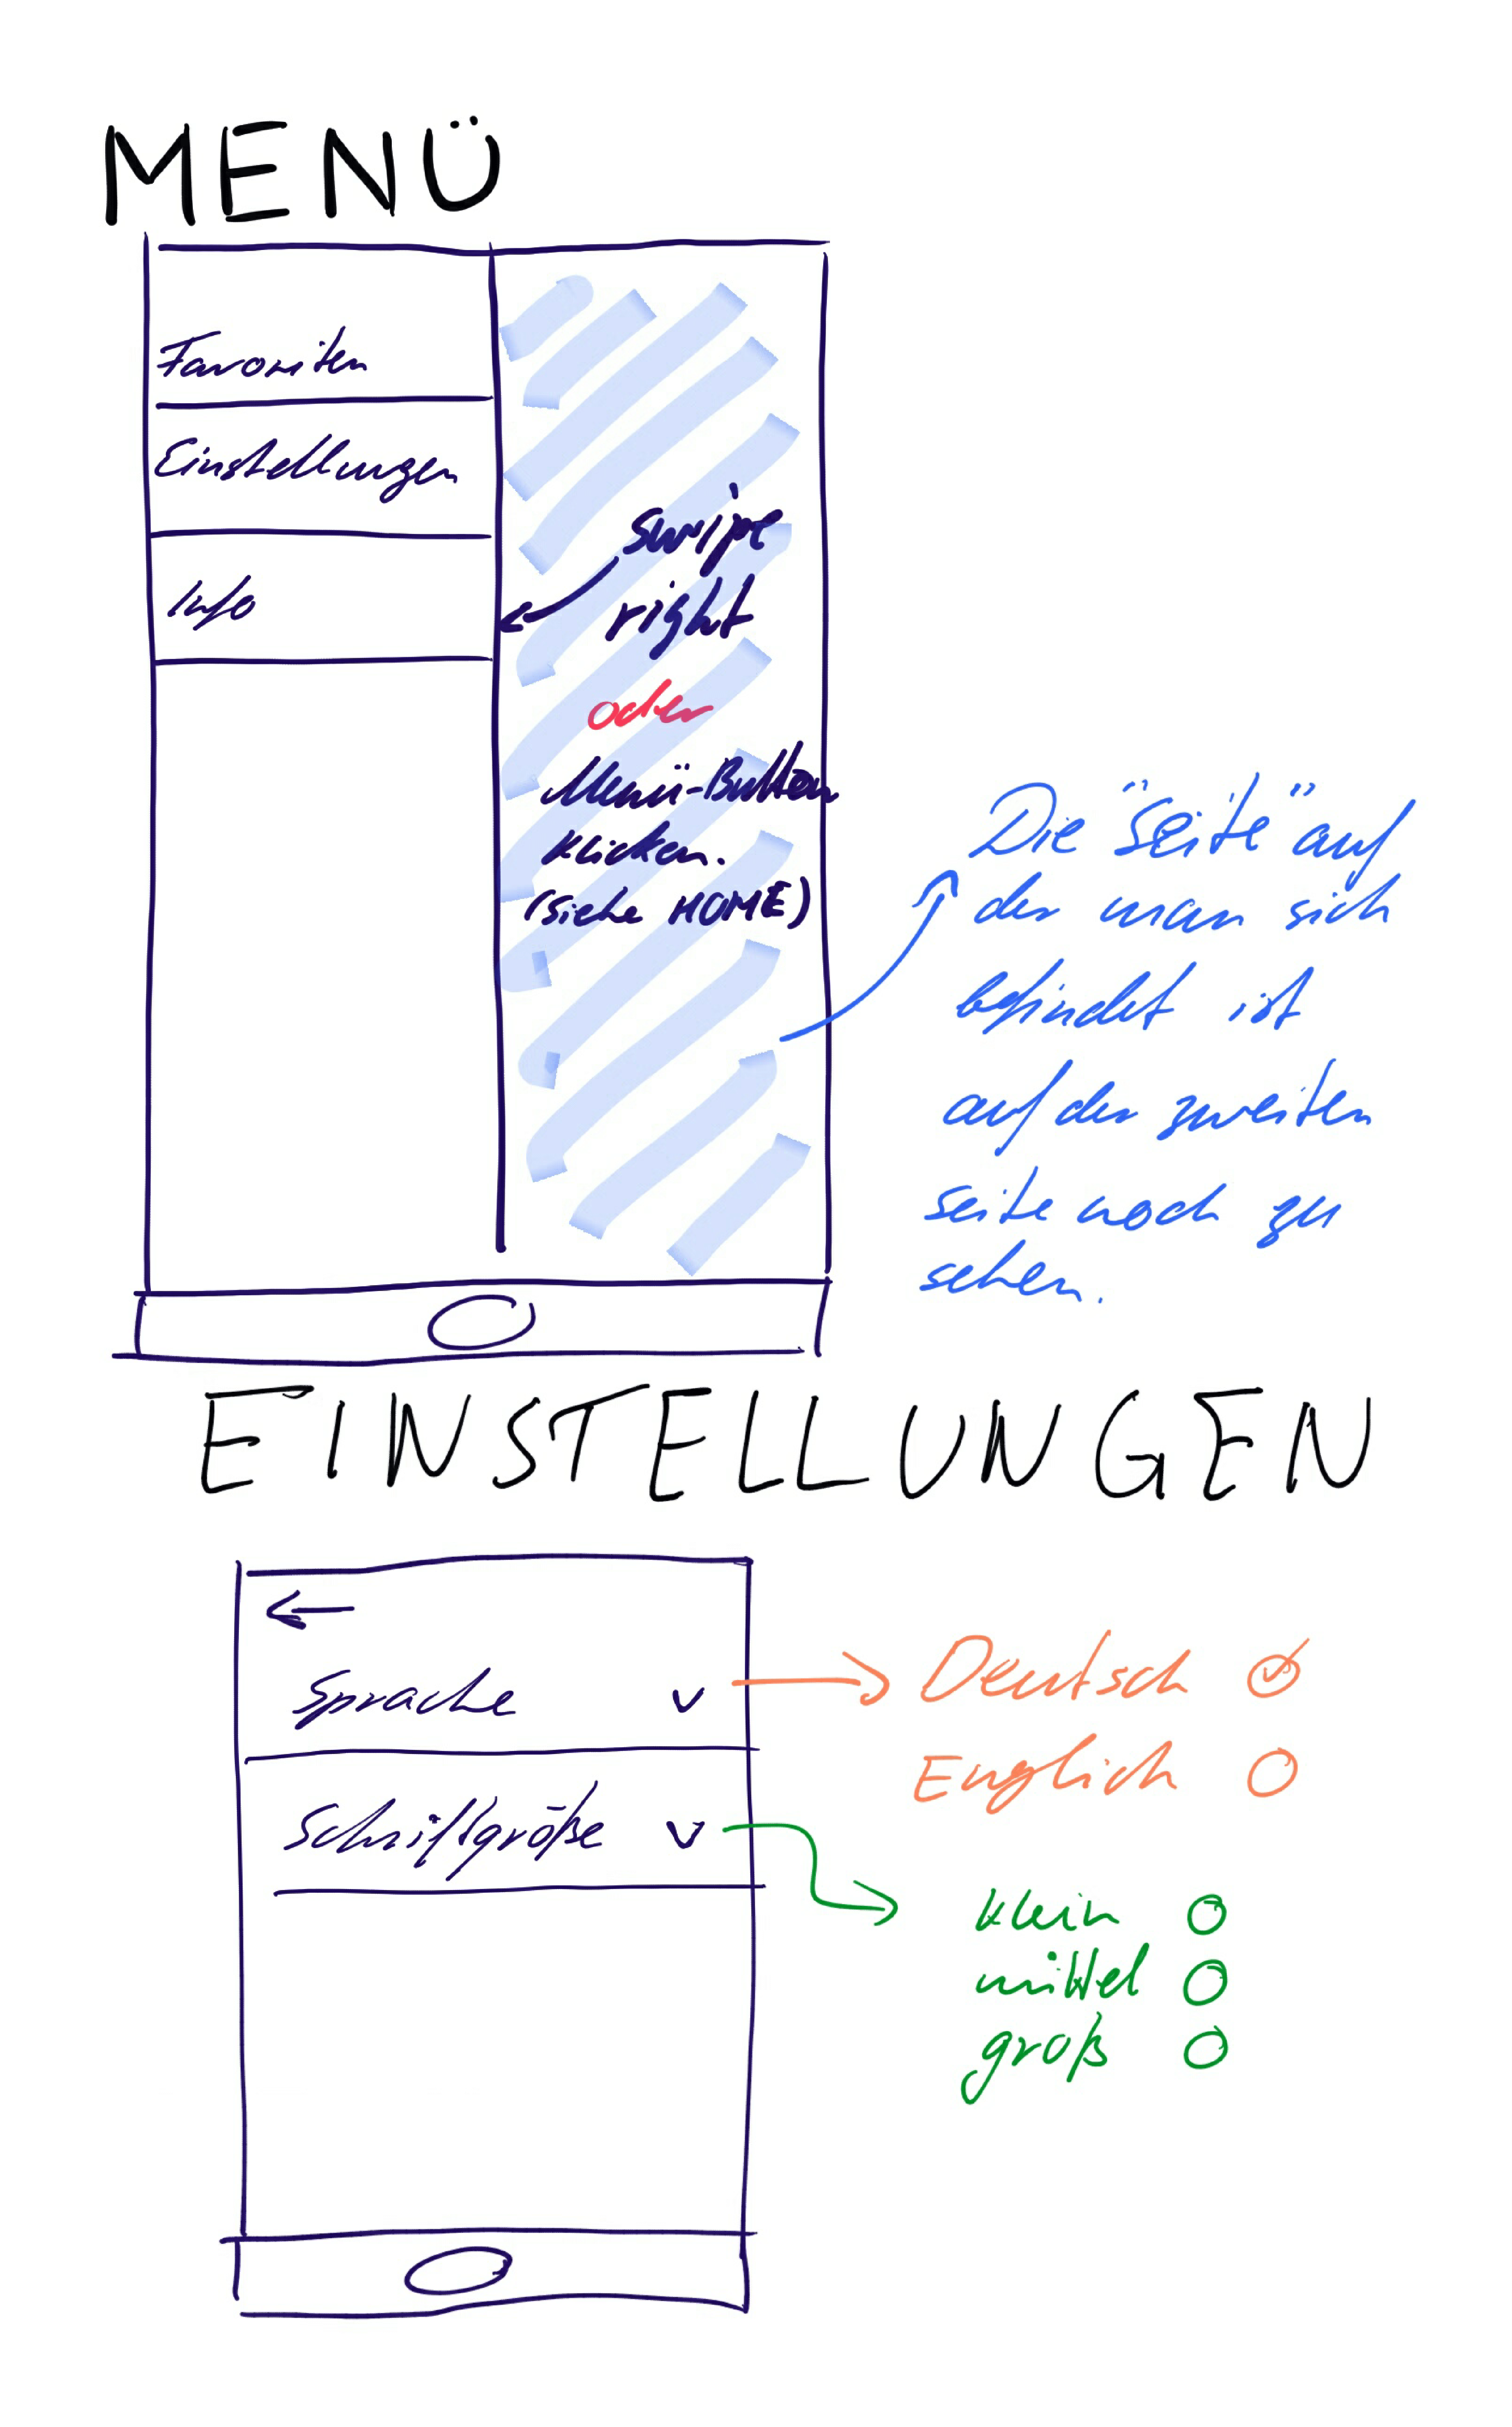 MENÜ
Favoriten
Einstellungen
Info
swipe
right
oder
Menü-Button
klicken.
(siehe HOME)
Die "Seite" auf
der man sich
befindet ist
auf der zweiten
seite noch zu
sehen.
EINSTELLUNGEN
Sprache
Deutsch
Englich
Schriftgröße
klein
mittel
groß